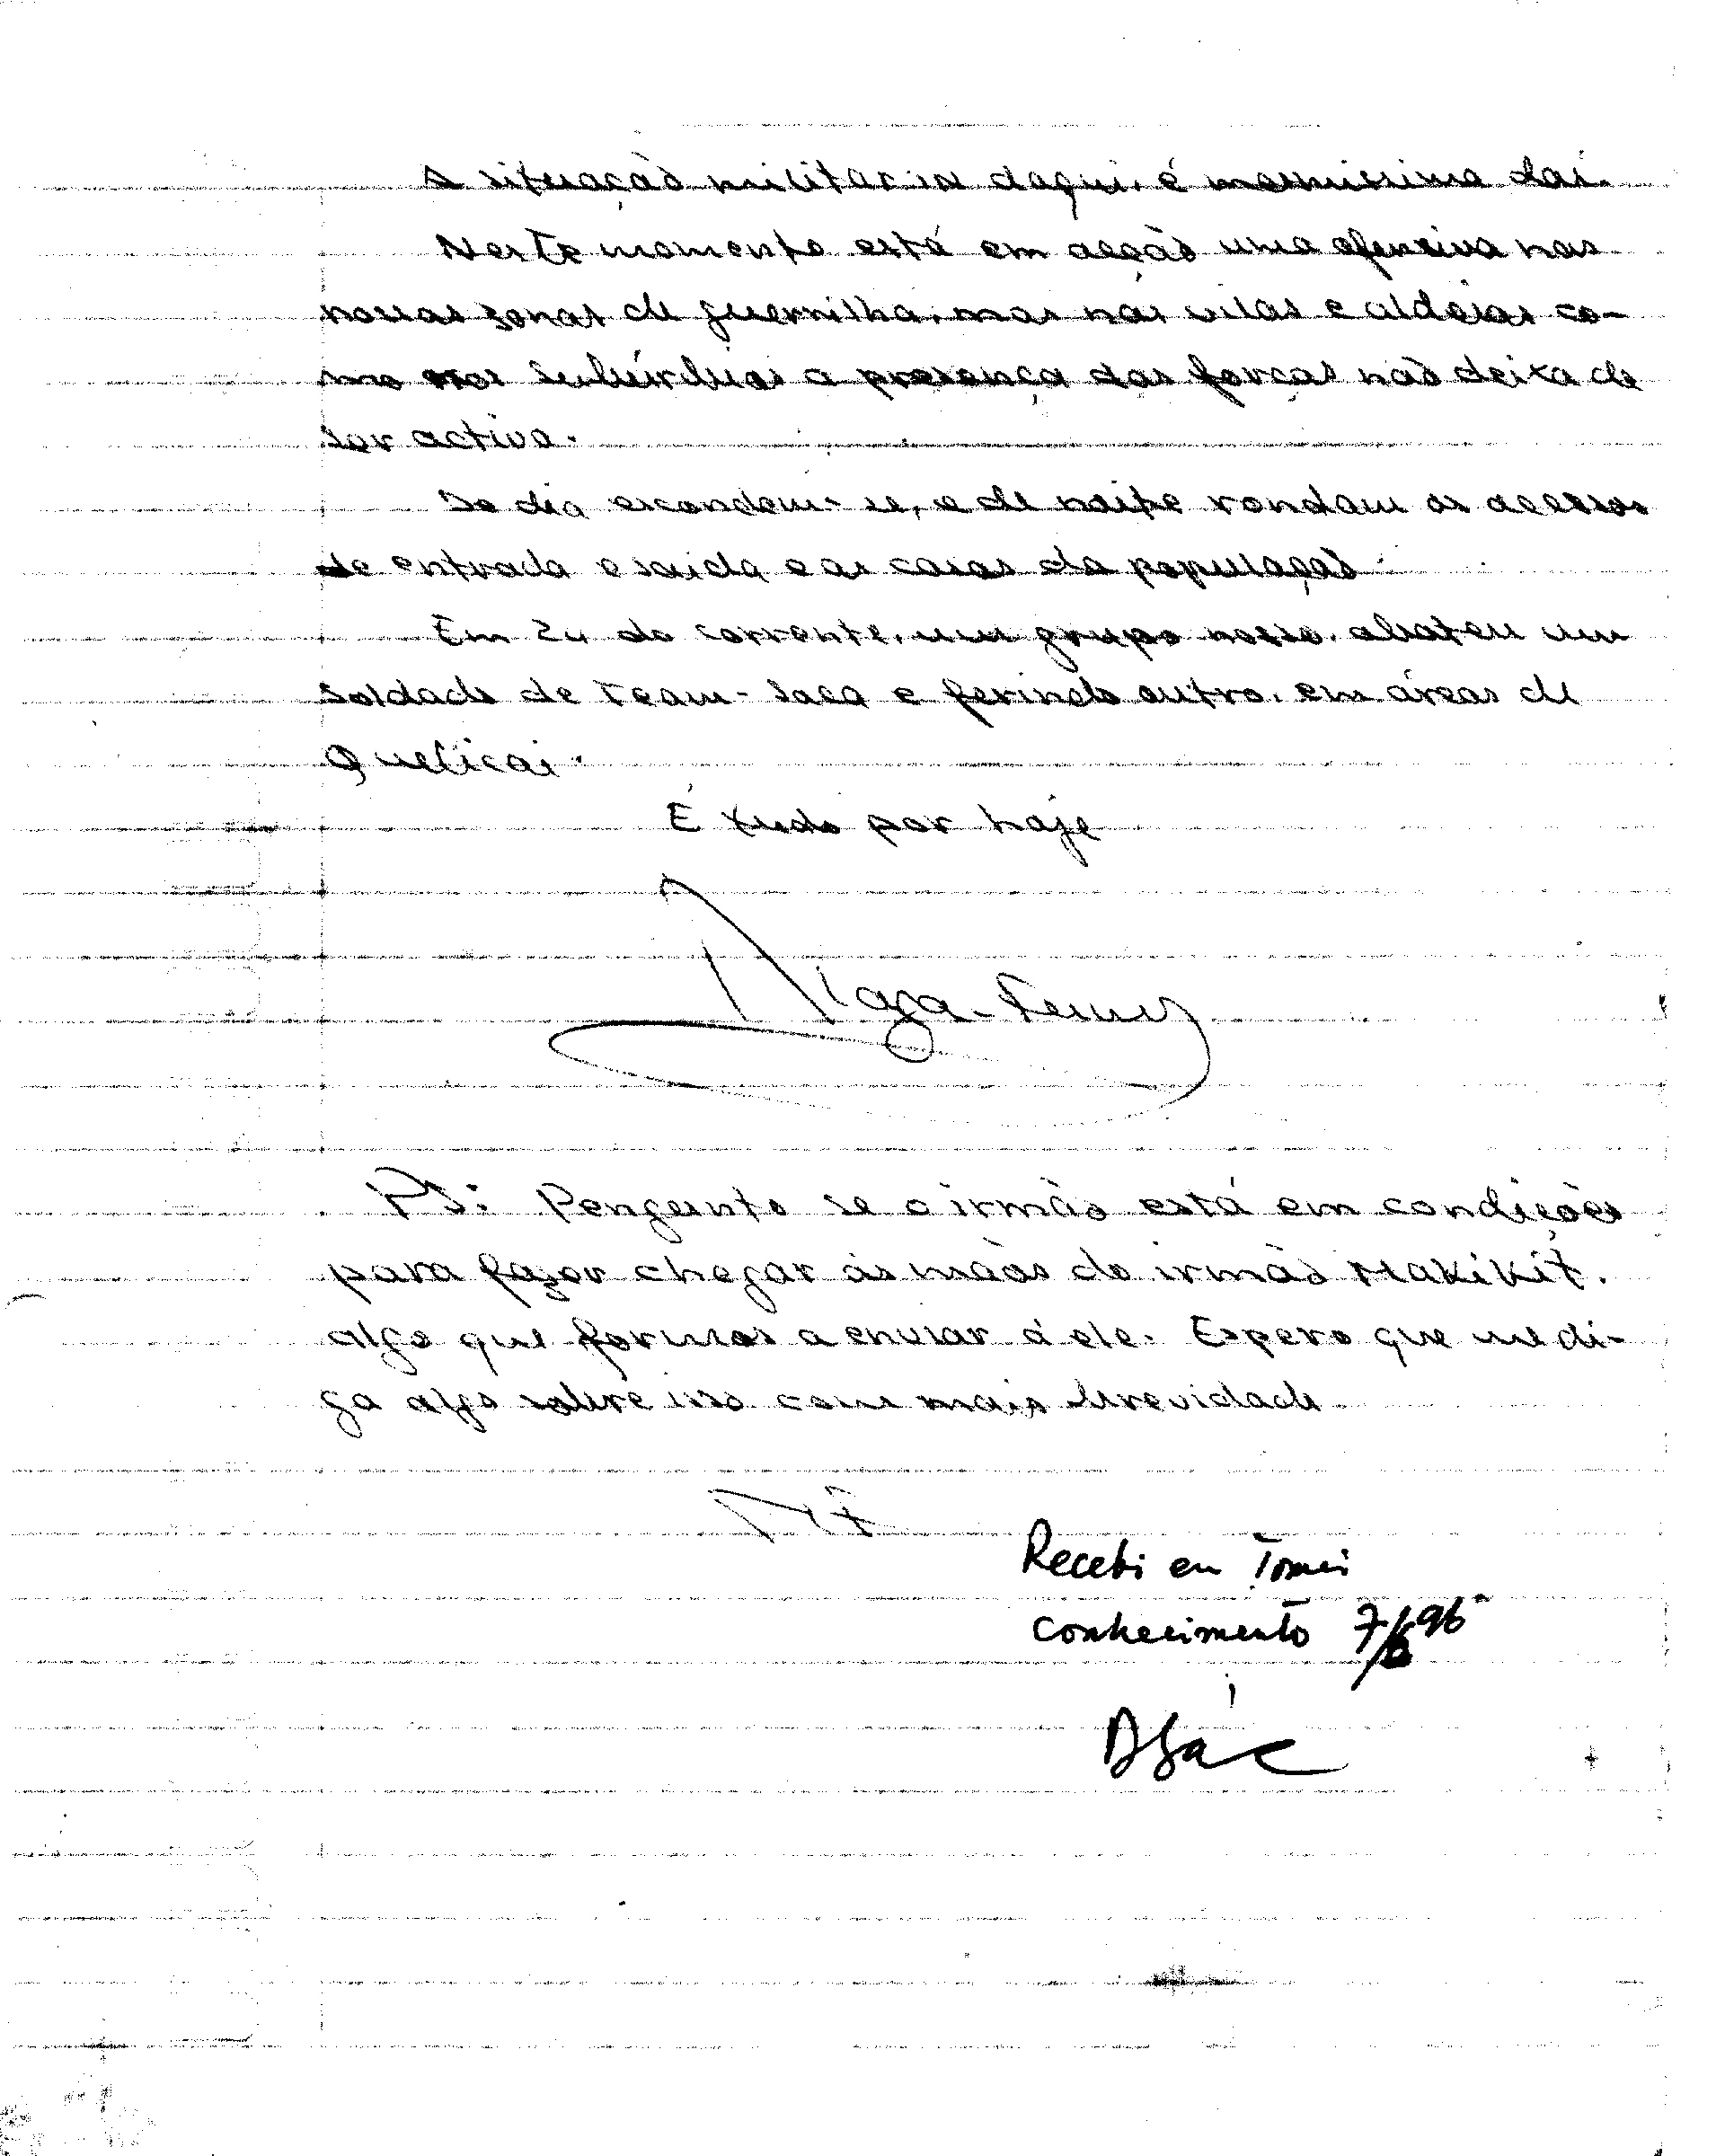 A situação militar in daqui, é mesmissima daí.
Neste momento está em acção uma ofensiva nas
nossas zonas de guerrilha, mas nas vilas e aldeias co-
mo nos subúrbios a presença das forças não deixa de
ser activa.
De dia escondem-se, e de noite rondam os acessos
de entrada e saída e as casas da população.
Em 24 do corrente, um grupo nosso, abateu um
soldado de Team-Saca e ferindo outro, em áreas de
Quelicai.
É tudo por hoje
PS: Pergunto se o irmão está em condições
para fazer chegar às mãos do irmão Makikit.
algo que formos a enviar á ele. Espero que me di-
ga algo sobre isso com mais brevidade.
Recebi em Tomei
conhecimento 7/6 96